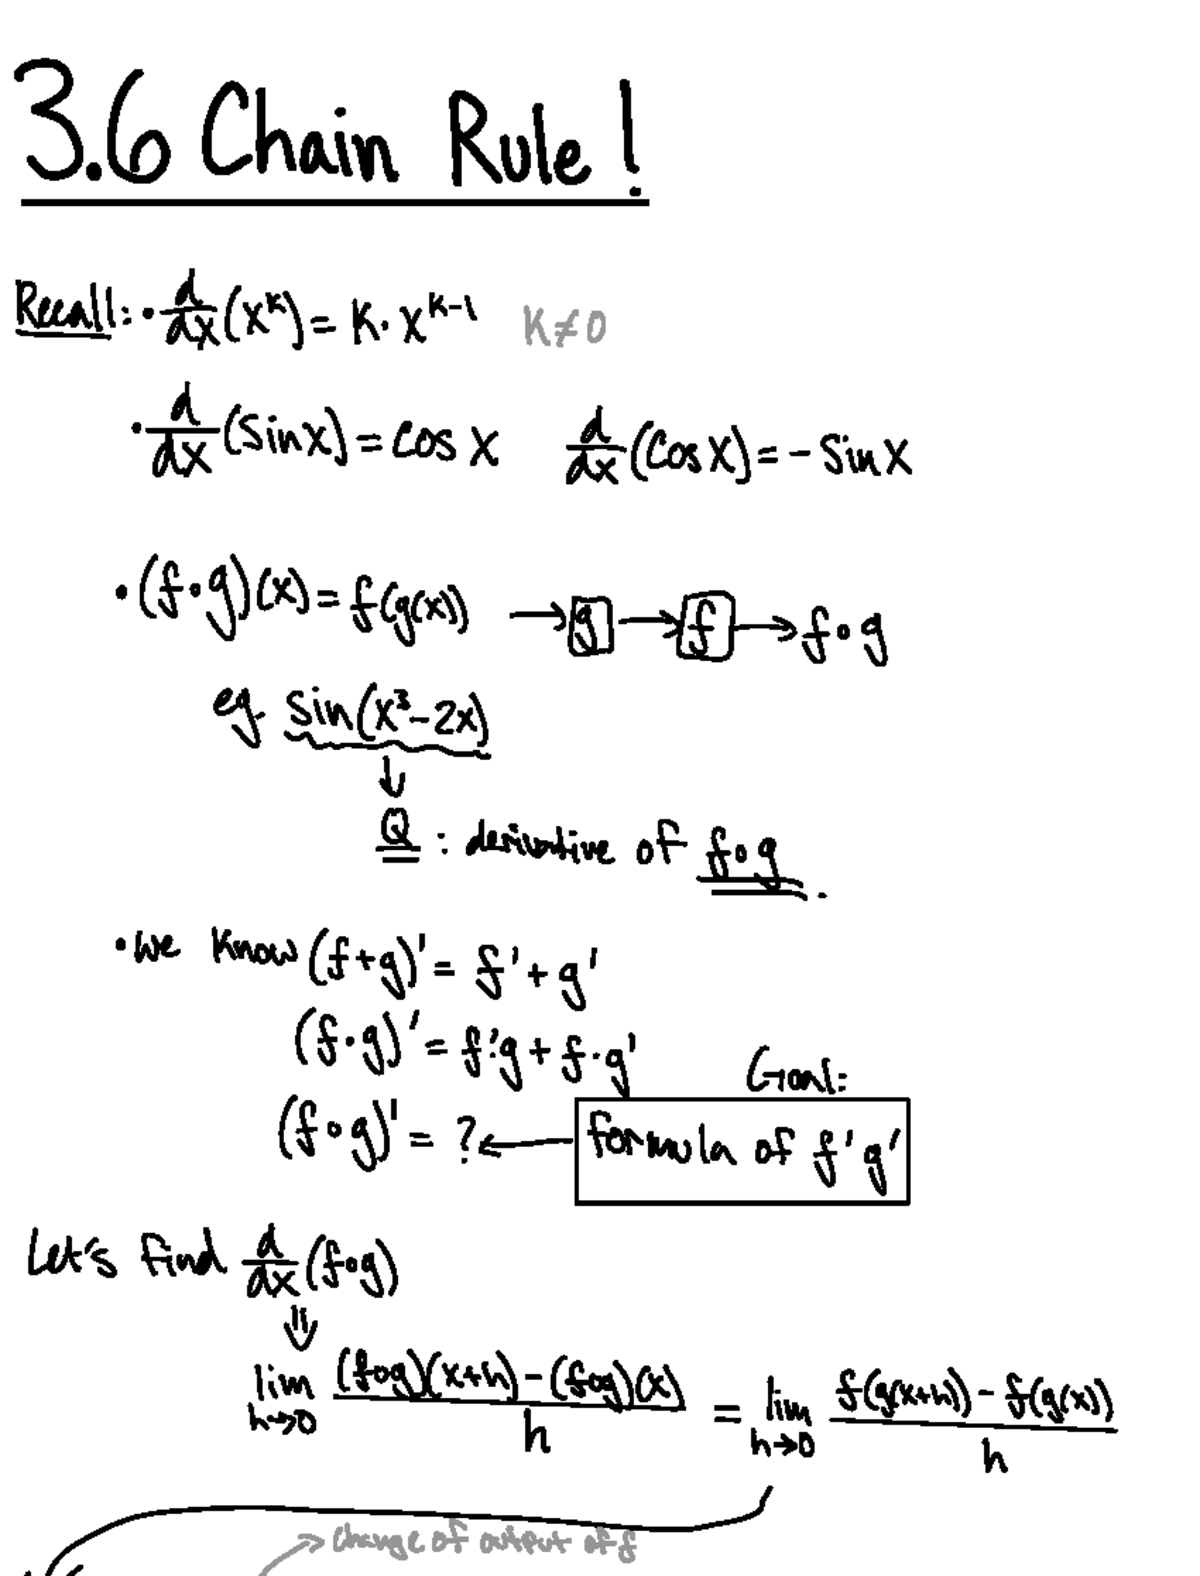 3.6 Chain Rule!
Recall: • d/dx (x^k) = k · x^(k-1) k ≠ 0
• d/dx (sin x) = cos x d/dx (cos x) = - sin x
• (f∘g)(x) = f(g(x)) → g → f → f∘g
eg. sin(x³-2x)
↓
Q : derivative of f∘g.
• We know (f+g)' = f' + g'
(f·g)' = f'·g + f·g'
Goal:
(f∘g)' = ? ← formula of f'g'
Let's find d/dx (f∘g)
⇓
lim h→0 ((f∘g)(x+h) - (f∘g)(x))/h = lim h→0 (f(g(x+h)) - f(g(x)))/h
→ change of output of f